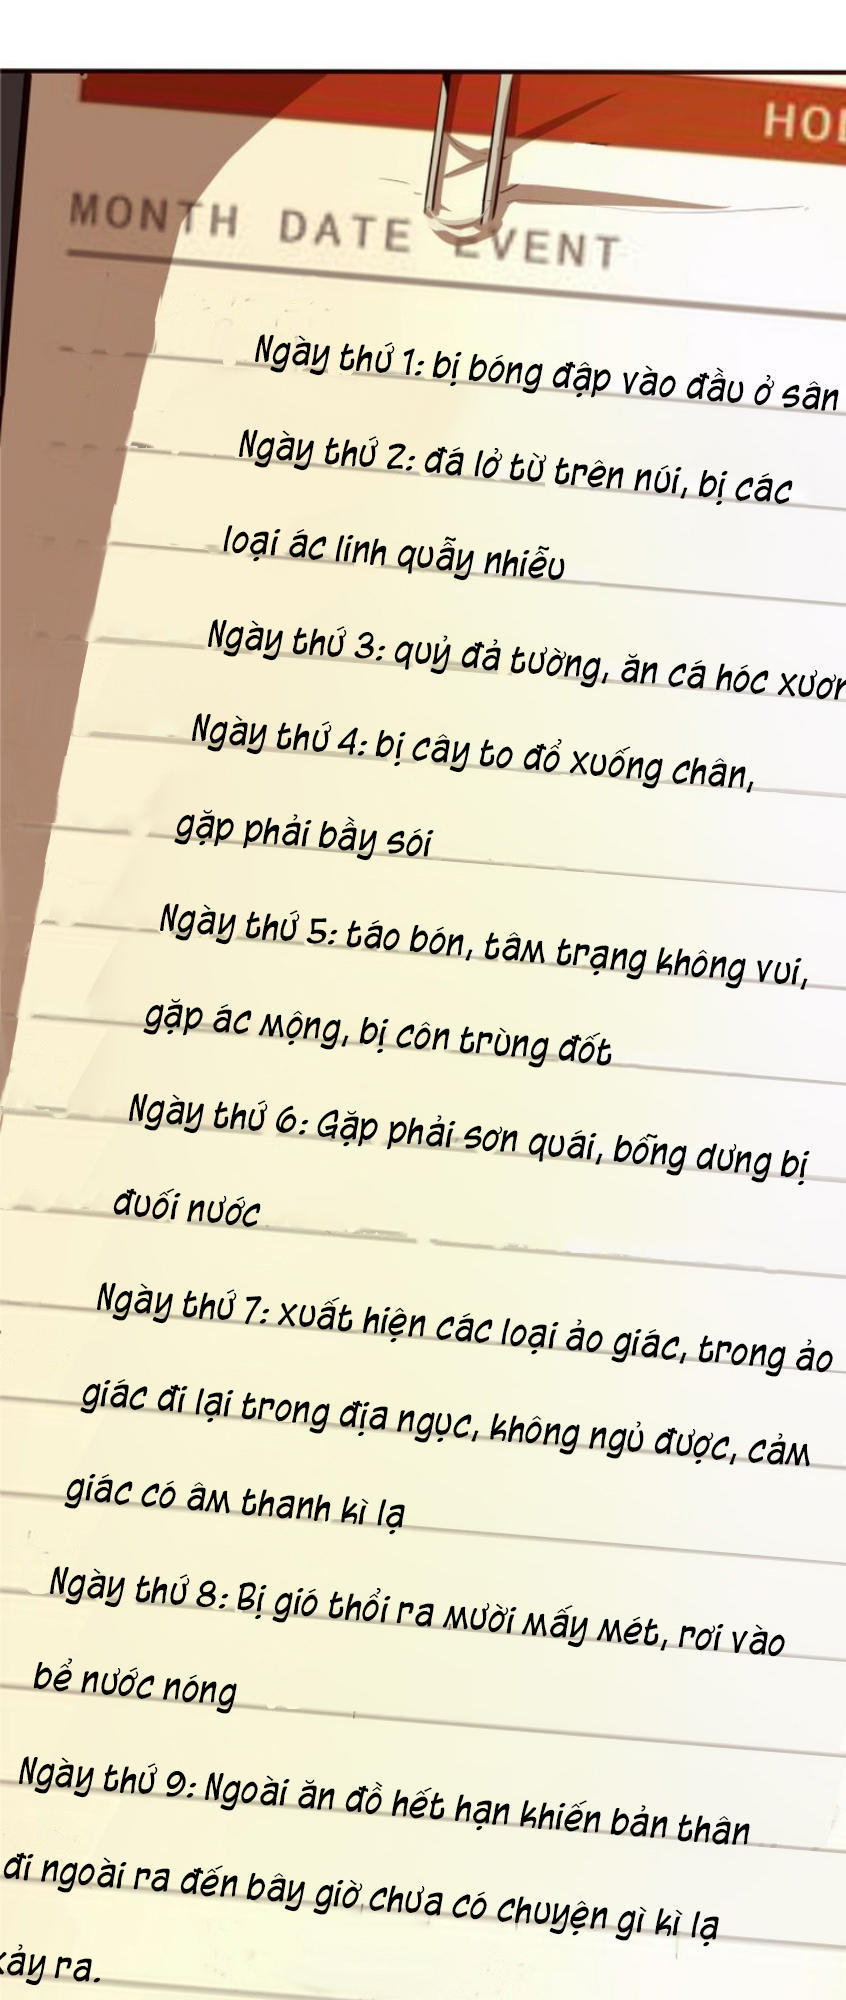 MONTH DATE EVENT
Ngày thứ 1: bị bóng đập vào đầu ở sân
Ngày thứ 2: đá lở từ trên núi, bị các
loại ác linh quẫy nhiễu
Ngày thứ 3: quỷ đả tường, ăn cá hóc
Ngày thứ 4: bị cây to đổ xuống chân,
gặp phải bầy sói
Ngày thứ 5: táo bón, tâm trạng không vui,
gặp ác mộng, bị côn trùng đốt
Ngày thứ 6: Gặp phải sơn quái, bỗng dưng bị
đuối nước
Ngày thứ 7: xuất hiện các loại ảo giác, trong ảo
giác đi lại trong địa ngục, không ngủ được, cảm
giác có âm thanh kì lạ
Ngày thứ 8: Bị gió thổi ra mười mấy mét, rơi vào
bể nước nóng
Ngày thứ 9: Ngoài ăn đồ hết hạn khiến bản thân
đi ngoài ra đến bây giờ chưa có chuyện gì kì lạ
xảy ra.